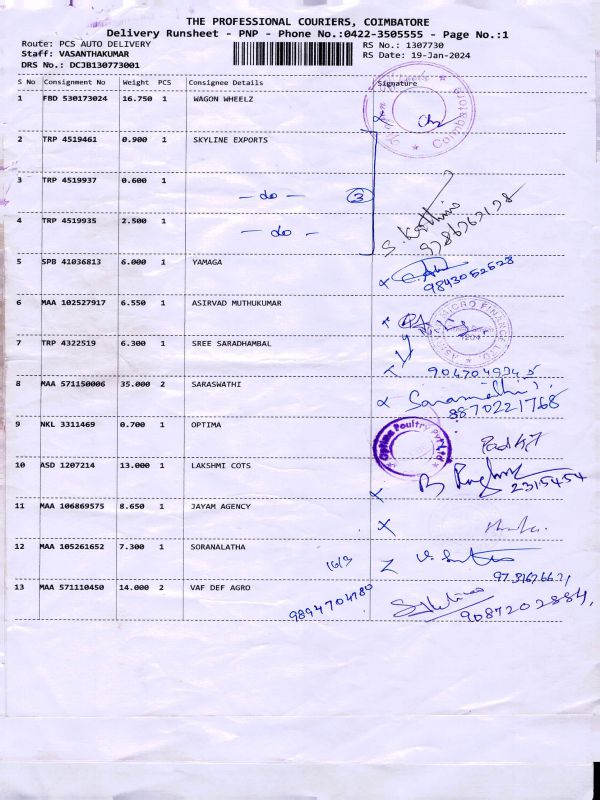 THE PROFESSIONAL COURIERS, COIMBATORE
Delivery Runsheet - PNP - Phone No.:0422-3505555 - Page No.:1
Route: PCS AUTO DELIVERY RS No.: 1307730
Staff: VASANTHAKUMAR RS Date: 19-Jan-2024
DRS No.: DCJB130773001
S No Consignment No Weight PCS Consignee Details Signature
1 FBD 530173024 16.750 1 WAGON WHEELZ
Coimbatore
2 TRP 4519461 0.900 1 SKYLINE EXPORTS
3 TRP 4519937 0.600 1
- do - 3
4 TRP 4519935 2.500 1 - do -
5 SPB 41036813 6.000 1 YAMAGA
9843052628
6 MAA 102527917 6.550 1 ASIRVAD MUTHUKUMAR
MICRO FINANCE LTD
7 TRP 4322519 6.300 1 SREE SARADHAMBAL
8 MAA 571150006 35.000 2 SARASWATHI
8870221768
9 NKL 3311469 0.700 1 OPTIMA
Optima Poultry Pvt Ltd
10 ASD 1207214 13.000 1 LAKSHMI COTS
2315454
11 MAA 106869575 8.650 1 JAYAM AGENCY
12 MAA 105261652 7.300 1 SORANALATHA
13 MAA 571110450 14.000 2 VAF DEF AGRO
9894704780
9087202884,